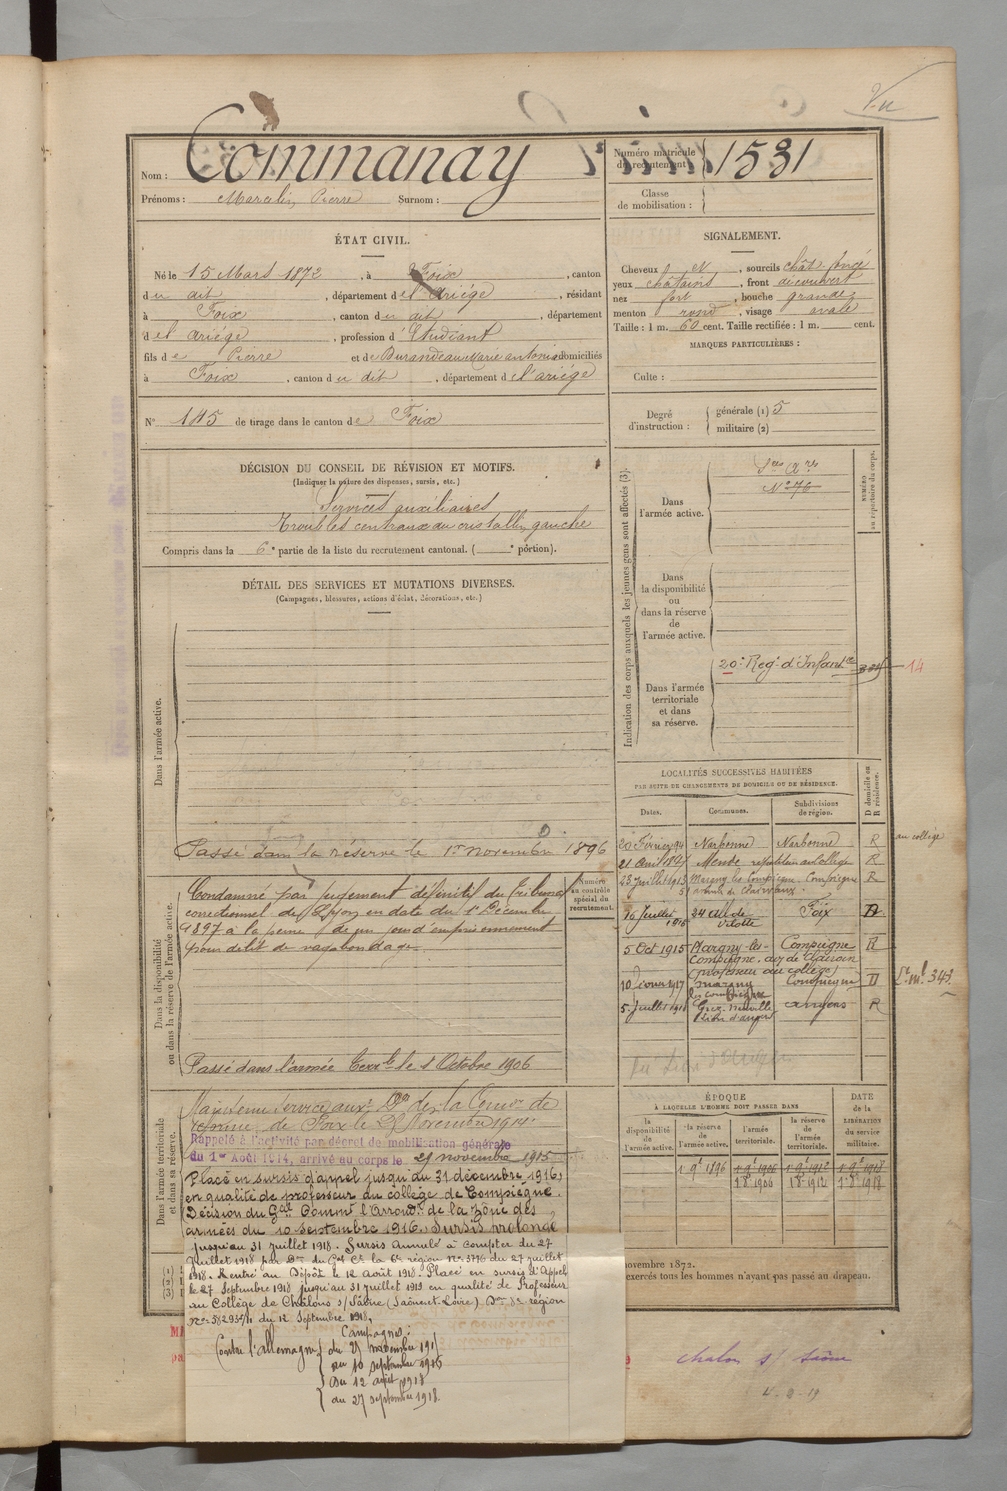 Vu
Nom : Commanay
Prénoms : Marcelin Pierre Surnom :
Numéro matricule du recrutement : 1531
Classe de mobilisation :
ÉTAT CIVIL.
Né le 15 Mars 1872, à Foix, canton
du dit, département de l'Ariége, résidant
à Foix, canton du dit, département
de l'ariége, profession d'Etudiant
fils de Pierre et de Durandeau Marie antonia domiciliés
à Foix, canton du dit, département de l'ariége
N° 145 de tirage dans le canton de Foix
SIGNALEMENT.
Cheveux et, sourcils chât. foncé
yeux châtains, front découvert
nez fort, bouche grande
menton rond, visage ovale
Taille : 1 m. 60 cent. Taille rectifiée : 1 m. cent.
MARQUES PARTICULIÈRES :
Culte :
Degré d'instruction : générale (1) 5
militaire (2)
DÉCISION DU CONSEIL DE RÉVISION ET MOTIFS.
(Indiquer la nature des dispenses, sursis, etc.)
Services auxiliaires
Troubles centraux au cristallin gauche
Compris dans la 6e partie de la liste du recrutement cantonal. ( e portion).
DÉTAIL DES SERVICES ET MUTATIONS DIVERSES.
(Campagnes, blessures, actions d'éclat, décorations, etc.)
Dans l'armée active.
Passé dans la réserve le 1er novembre 1896
Dans la disponibilité ou dans la réserve de l'armée active.
Numéro au contrôle spécial du recrutement.
Condamné par jugement définitif du Tribunal
correctionnel de Lyon en date du 1er Décembre
1897 à la peine de un jour d'emprisonnement
pour délit de vagabondage.
Passé dans l'armée Terrle le 1 Octobre 1906
Dans l'armée territoriale et dans sa réserve.
Maintenu service auxre Don de la Comon de
réforme de Foix le 29 Novembre 1914.
Rappelé à l'activité par décret de mobilisation générale
du 1er Août 1914, arrivé au corps le 29 novembre 1915
Placé en sursis d'appel jusqu'au 31 décembre 1916,
en qualité de professeur au collège de Compiègne.
Décision du Gal Commt l'Arrondt de la Zône des
armées du 10 septembre 1916. Sursis prolongé
jusqu'au 31 juillet 1918. Sursis annulé à compter du 27
juillet 1918 par Don du Gal Ct la 6e région n° 5776 du 27 juillet
1918. Rentré au Dépôt le 12 août 1918. Placé en sursis d'Appel
le 27 Septembre 1918 jusqu'au 31 juillet 1919 en qualité de Professeur
au Collège de Châlons s/ Saône (Saône et Loire) Don 8e région
du 12 Septembre 1918.
Campagnes :
Contre l'Allemagne
du 29 novembre 1915
au 10 septembre 1916
Du 12 août 1918
au 27 septembre 1918.
Indication des corps auxquels les jeunes gens sont affectés (3).
NUMÉRO au répertoire du corps.
Dans l'armée active.
N° 76
Dans la disponibilité ou dans la réserve de l'armée active.
Dans l'armée territoriale et dans sa réserve.
20e Regt d'Infantie
14
LOCALITÉS SUCCESSIVES HABITÉES
PAR SUITE DE CHANGEMENTS DE DOMICILE OU DE RÉSIDENCE.
Dates. Communes. Subdivisions de région. D domicile ou R résidence.
20 Février 94 Narbonne Narbonne R au collège
Mende R
23 Juillet 1913 Margny les Compiègne Compiègne R
16 Juillet 1916 34 all. de Vilotte Foix D
5 Oct 1915 Margny-lès-Compiègne Compiègne R
(professeur au collège)
10 février 1917 Margny les Compiègne Compiègne D
5 Juillet 1918 angers R
ÉPOQUE
À LAQUELLE L'HOMME DOIT PASSER DANS
la disponibilité de l'armée active. la réserve de l'armée active. l'armée territoriale. la réserve de l'armée territoriale.
DATE DE LA LIBÉRATION du service militaire.
1 9e 1896 1 9e 1906 1 9e 1912 1 9e 1918
1 8e 1906 1 8e 1912 1 8e 1918
novembre 1872.
exercés tous les hommes n'ayant pas passé au drapeau.
(1)
(2)
(3)
Chalon s/ Saône
4-2-19